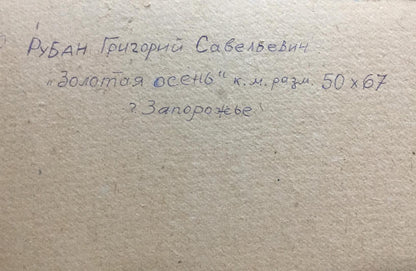 Рубан Григорий Савельевич
"Золотая осень" к.м. разм. 50x67
г Запорожье